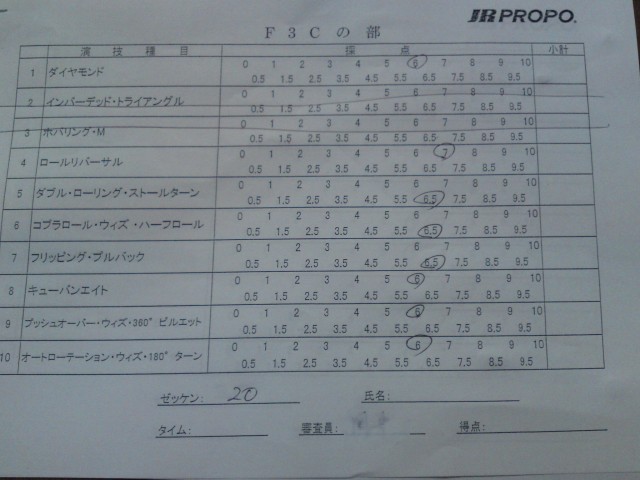 JR PROPO.
F3Cの部
演技種目 採点 小計
1 ダイヤモンド 0 1 2 3 4 5 6 7 8 9 10
0.5 1.5 2.5 3.5 4.5 5.5 6.5 7.5 8.5 9.5
2 インバーデッド・トライアングル 0 1 2 3 4 5 6 7 8 9 10
0.5 1.5 2.5 3.5 4.5 5.5 6.5 7.5 8.5 9.5
3 ホバリング・M 0 1 2 3 4 5 6 7 8 9 10
0.5 1.5 2.5 3.5 4.5 5.5 6.5 7.5 8.5 9.5
4 ロールリバーサル 0 1 2 3 4 5 6 7 8 9 10
0.5 1.5 2.5 3.5 4.5 5.5 6.5 7.5 8.5 9.5
5 ダブル・ローリング・ストールターン 0 1 2 3 4 5 6 7 8 9 10
0.5 1.5 2.5 3.5 4.5 5.5 6.5 7.5 8.5 9.5
6 コブラロール・ウィズ・ハーフロール 0 1 2 3 4 5 6 7 8 9 10
0.5 1.5 2.5 3.5 4.5 5.5 6.5 7.5 8.5 9.5
7 フリッピング・プルバック 0 1 2 3 4 5 6 7 8 9 10
0.5 1.5 2.5 3.5 4.5 5.5 6.5 7.5 8.5 9.5
8 キューバンエイト 0 1 2 3 4 5 6 7 8 9 10
0.5 1.5 2.5 3.5 4.5 5.5 6.5 7.5 8.5 9.5
9 プッシュオーバー・ウィズ・360°ピルエット 0 1 2 3 4 5 6 7 8 9 10
0.5 1.5 2.5 3.5 4.5 5.5 6.5 7.5 8.5 9.5
10 オートローテーション・ウィズ・180°ターン 0 1 2 3 4 5 6 7 8 9 10
0.5 1.5 2.5 3.5 4.5 5.5 6.5 7.5 8.5 9.5
ゼッケン: 20 氏名:
タイム: 審査員: 得点: